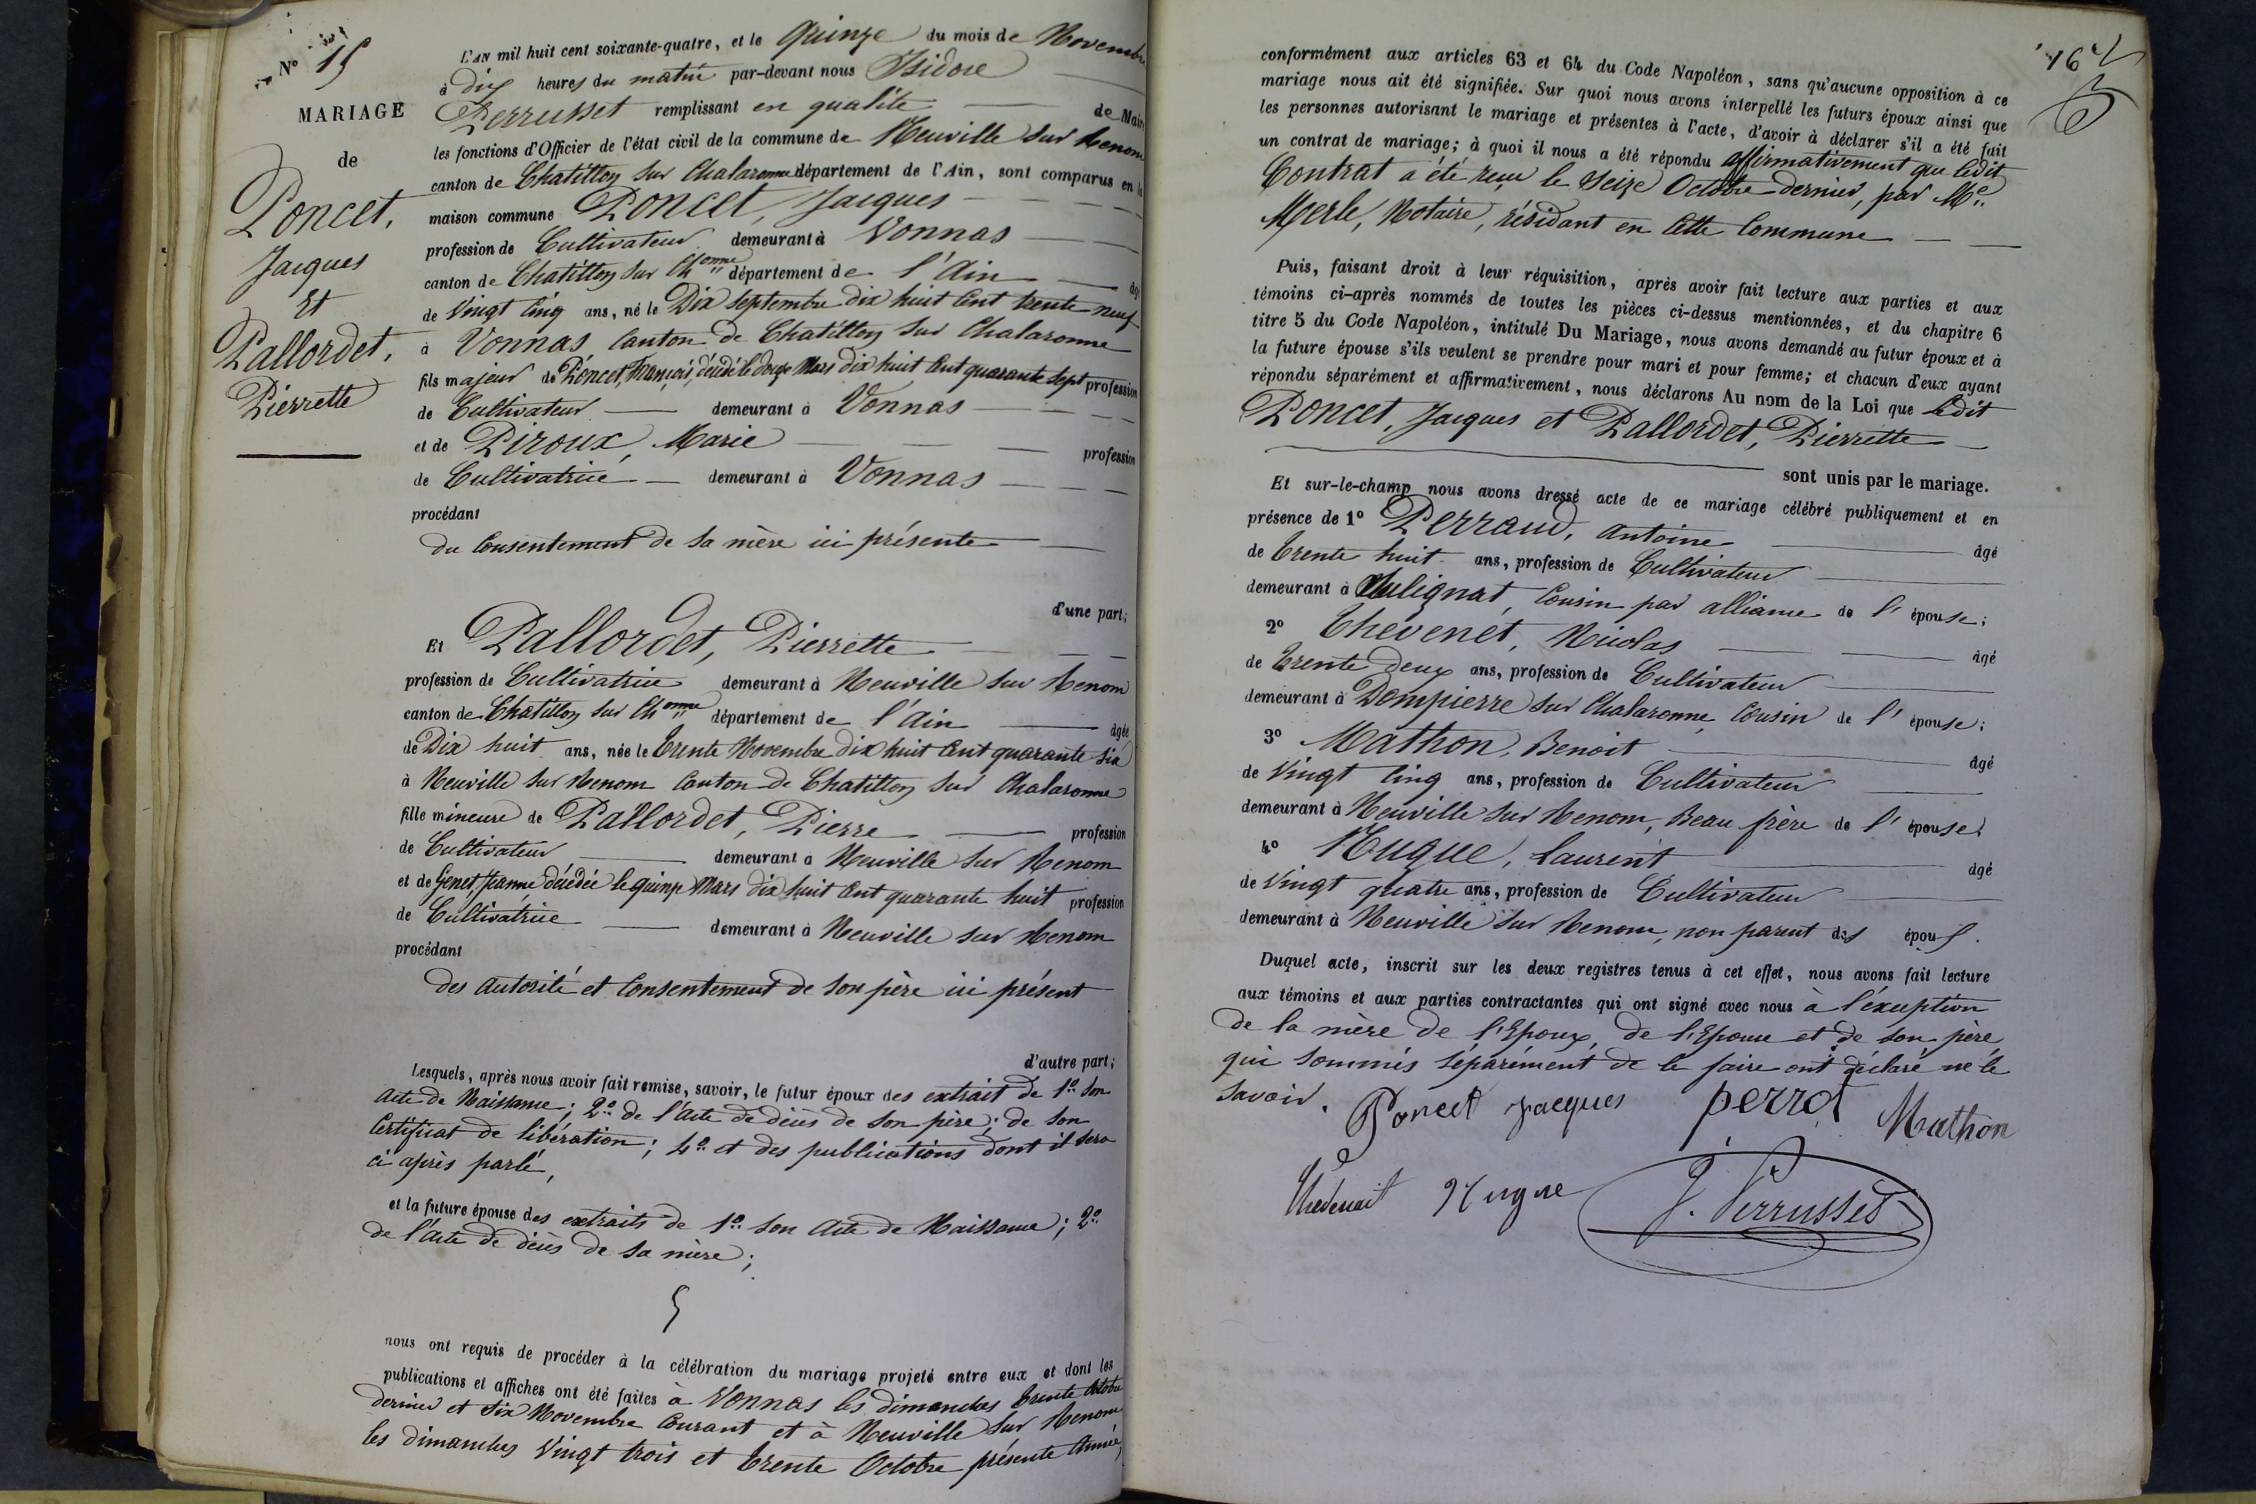 N° 15
MARIAGE
de
Poncet,
Jacques
Et
Pallordet,
Pierrette
L'AN mil huit cent soixante-quatre, et le Quinze du mois de Novembre
à dix heures du matin par-devant nous Isidore
Perrusset remplissant en qualité de Maire
les fonctions d'Officier de l'état civil de la commune de Neuville sur Renom
canton de Chatillon sur Chalaronne département de l'Ain, sont comparus en la
maison commune Poncet, Jacques
profession de Cultivateur demeurant à Vonnas
canton de Chatillon sur Chonne département de l'Ain âgé
de Vingt cinq ans, né le Dix Septembre dix huit cent trente neuf
à Vonnas Canton de Chatillon sur Chalaronne
fils majeur de Poncet, François, décédé le douze Mars dix huit cent quarante sept profession
de Cultivateur demeurant à Vonnas
et de Piroux, Marie profession
de Cultivatrice demeurant à Vonnas
procédant
du Consentement de sa mère ici présente
d'une part;
Et Pallordet, Pierrette
profession de Cultivatrice demeurant à Neuville sur Renom
canton de Chatillon sur Chonne département de l'Ain âgée
de Dix huit ans, née le Trente Novembre dix huit cent quarante six
à Neuville sur Renom Canton de Chatillon sur Chalaronne
fille mineure de Pallordet, Pierre profession
de Cultivateur demeurant à Neuville sur Renom
et de Genet, Jeanne décédée le quinze Mars dix huit cent quarante huit profession
de Cultivatrice demeurant à Neuville sur Renom
procédant
des autorité et Consentement de son père ici présent
d'autre part;
Lesquels, après nous avoir fait remise, savoir, le futur époux des extrait de 1° son
acte de Naissance; 2° de l'acte de décès de son père; de son
Certificat de libération; 4° et des publications dont il sera
ci après parlé,
et la future épouse des extraits de 1° son acte de Naissance; 2°
de l'acte de décès de sa mère;
nous ont requis de procéder à la célébration du mariage projeté entre eux et dont les
publications et affiches ont été faites à Vonnas les dimanches trente Octobre
dernier et six Novembre Courant et à Neuville sur Renom
les dimanches Vingt trois et trente Octobre présente Année,
16
conformément aux articles 63 et 64 du Code Napoléon, sans qu'aucune opposition à ce
mariage nous ait été signifiée. Sur quoi nous avons interpellé les futurs époux ainsi que
les personnes autorisant le mariage et présentes à l'acte, d'avoir à déclarer s'il a été fait
un contrat de mariage; à quoi il nous a été répondu affirmativement que ledit
Contrat a été reçu le Seize Octobre dernier, par Me
Merle, Notaire, résidant en cette Commune
Puis, faisant droit à leur réquisition, après avoir fait lecture aux parties et aux
témoins ci-après nommés de toutes les pièces ci-dessus mentionnées, et du chapitre 6
titre 5 du Code Napoléon, intitulé Du Mariage, nous avons demandé au futur époux et à
la future épouse s'ils veulent se prendre pour mari et pour femme; et chacun d'eux ayant
répondu séparément et affirmativement, nous déclarons Au nom de la Loi que ledit
Poncet, Jacques et Pallordet, Pierrette
sont unis par le mariage.
Et sur-le-champ nous avons dressé acte de ce mariage célébré publiquement et en
présence de 1° Perraud, Antoine âgé
de trente huit ans, profession de Cultivateur
demeurant à Sulignat, Cousin par alliance de l'épouse;
2° Thevenet, Nicolas âgé
de trente deux ans, profession de Cultivateur
demeurant à Dompierre sur Chalaronne, Cousin de l'épouse;
3° Mathon, Benoit âgé
de Vingt Cinq ans, profession de Cultivateur
demeurant à Neuville sur Renom, Beau frère de l'épouse;
4° Nugue, Laurent âgé
de Vingt quatre ans, profession de Cultivateur
demeurant à Neuville sur Renom, non parent des épous.
Duquel acte, inscrit sur les deux registres tenus à cet effet, nous avons fait lecture
aux témoins et aux parties contractantes qui ont signé avec nous à l'exception
de la mère de l'Epoux, de l'Epouse et de son père
qui sommés séparément de le faire ont déclaré ne le
savoir.
Poncet Jacques perrot Mathon
Nugue J. Perrusset